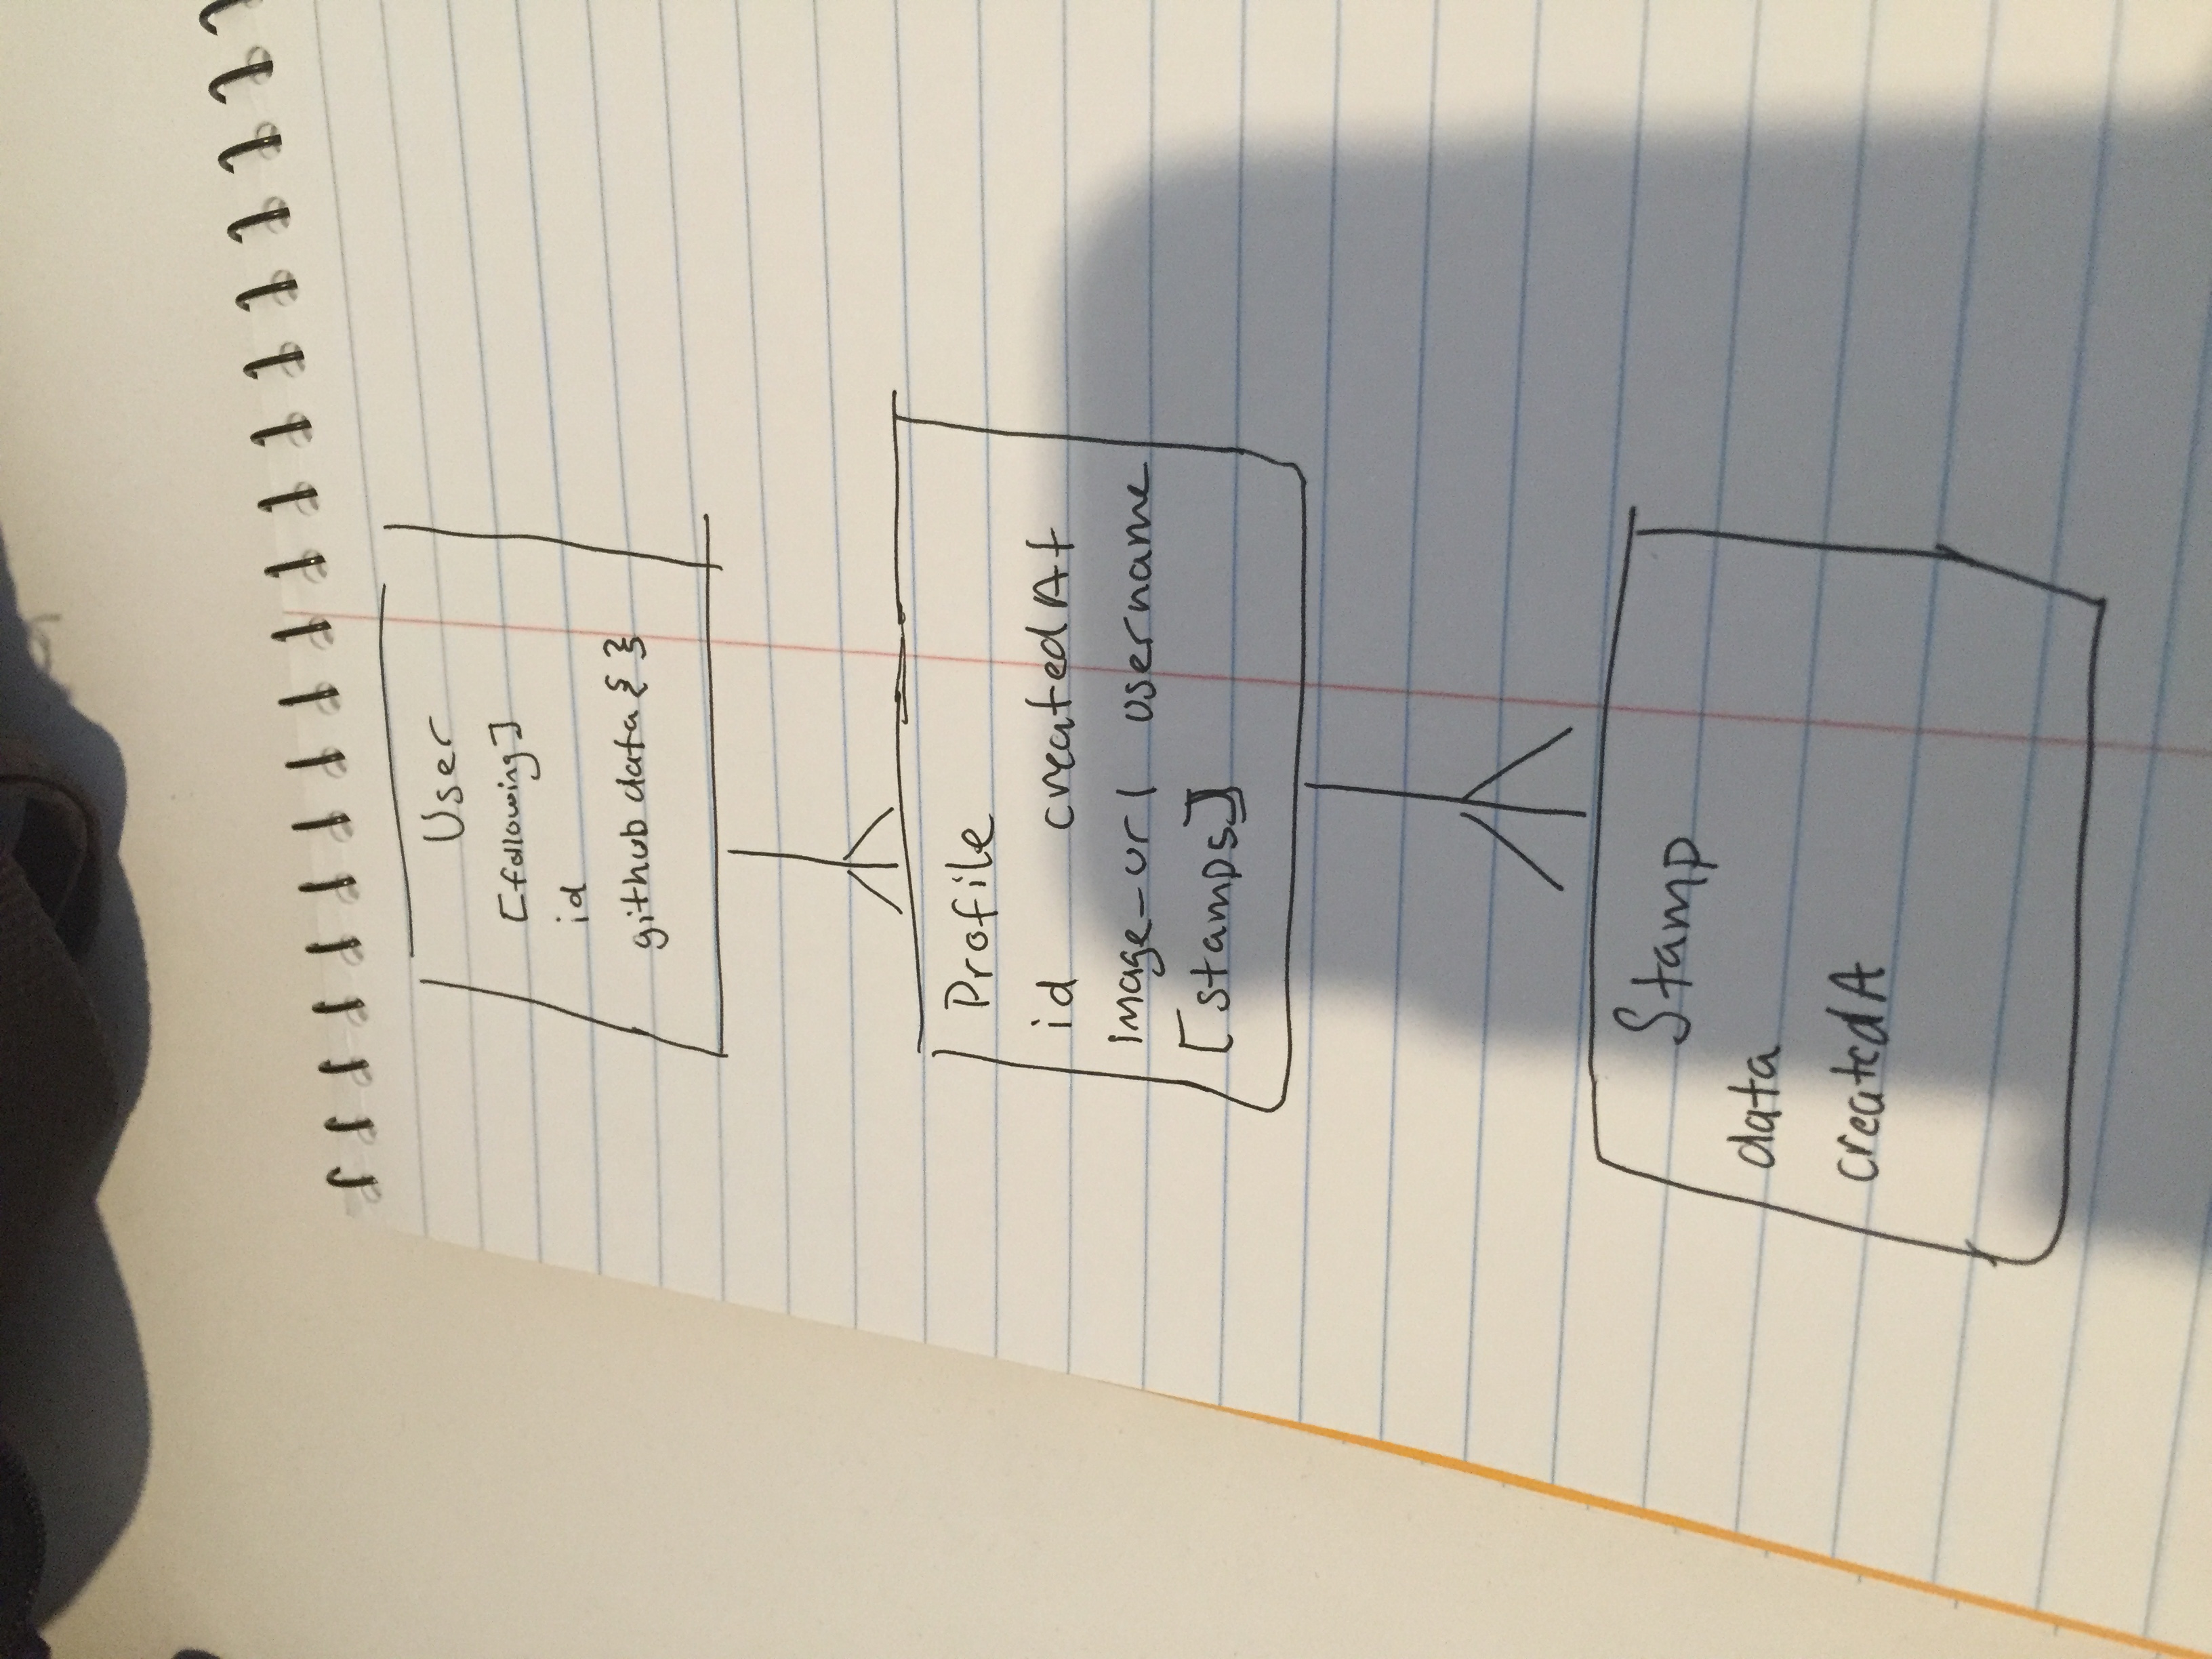 User
[following]
id
github data { }
Profile
id createdAt
image_url username
[stamps]
Stamp
data
createdA